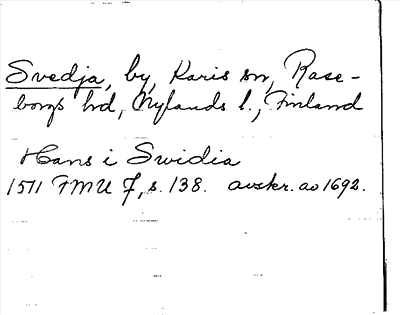 Svedja, by, Karis sn, Rase-
borgs hd, Nylands l., Finland
Hans i Swidia
1511 FMU 7, s. 138. avskr. av 1692.